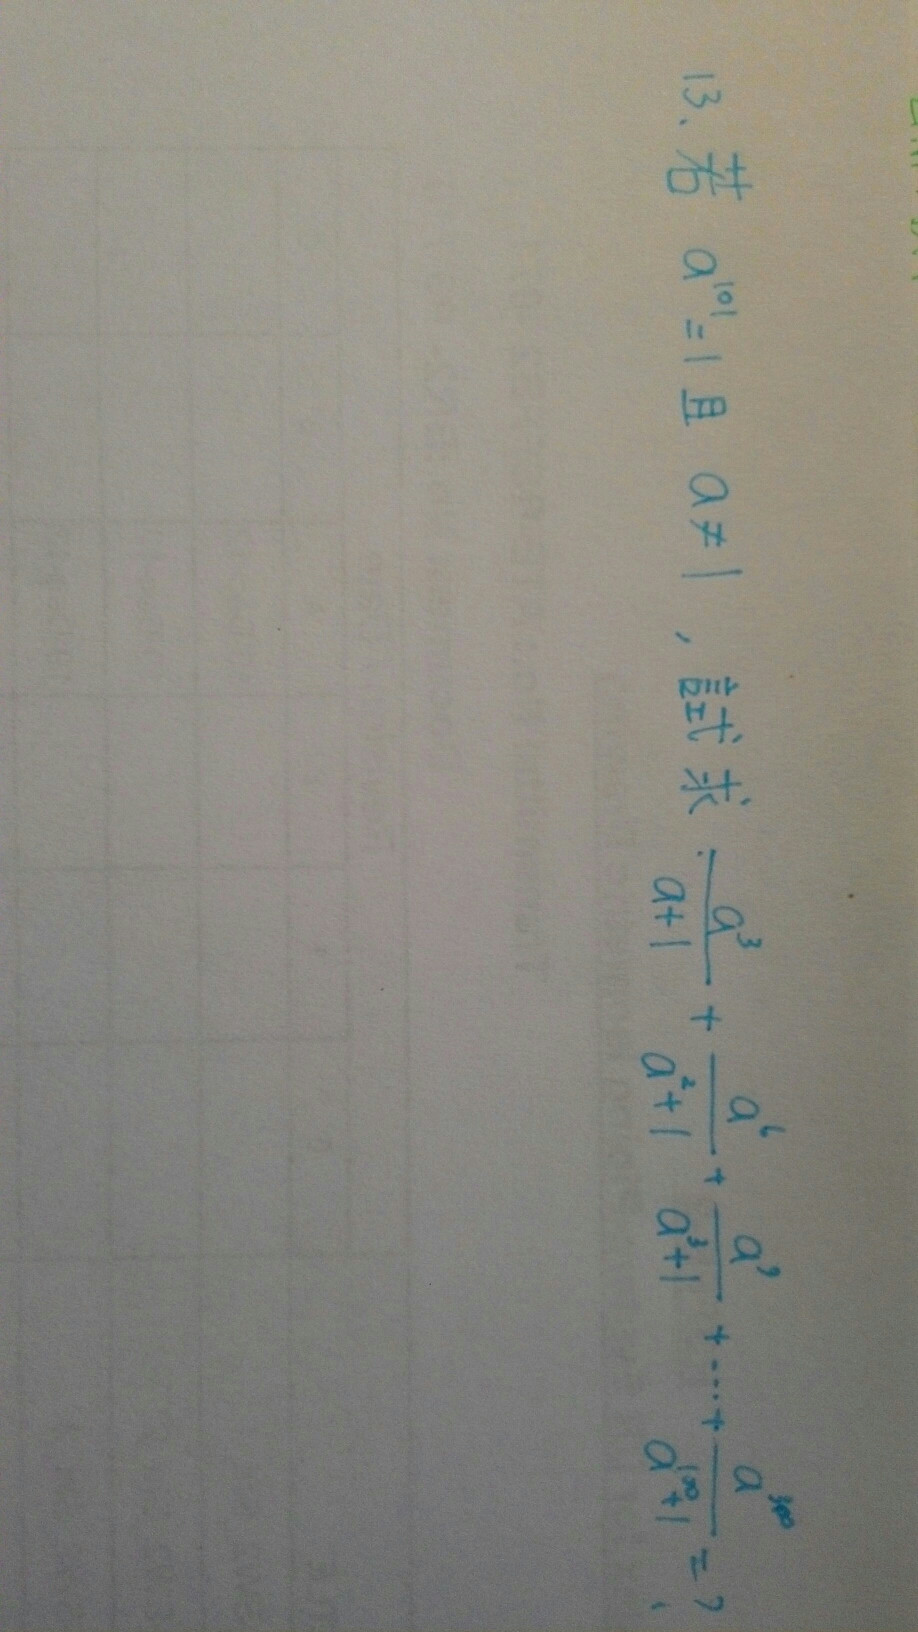 13、若 a¹⁰¹=1 且 a≠1，試求 a³/(a+1) + a⁶/(a²+1) + a⁹/(a³+1) + ... + a³⁰⁰/(a¹⁰⁰+1) = ?